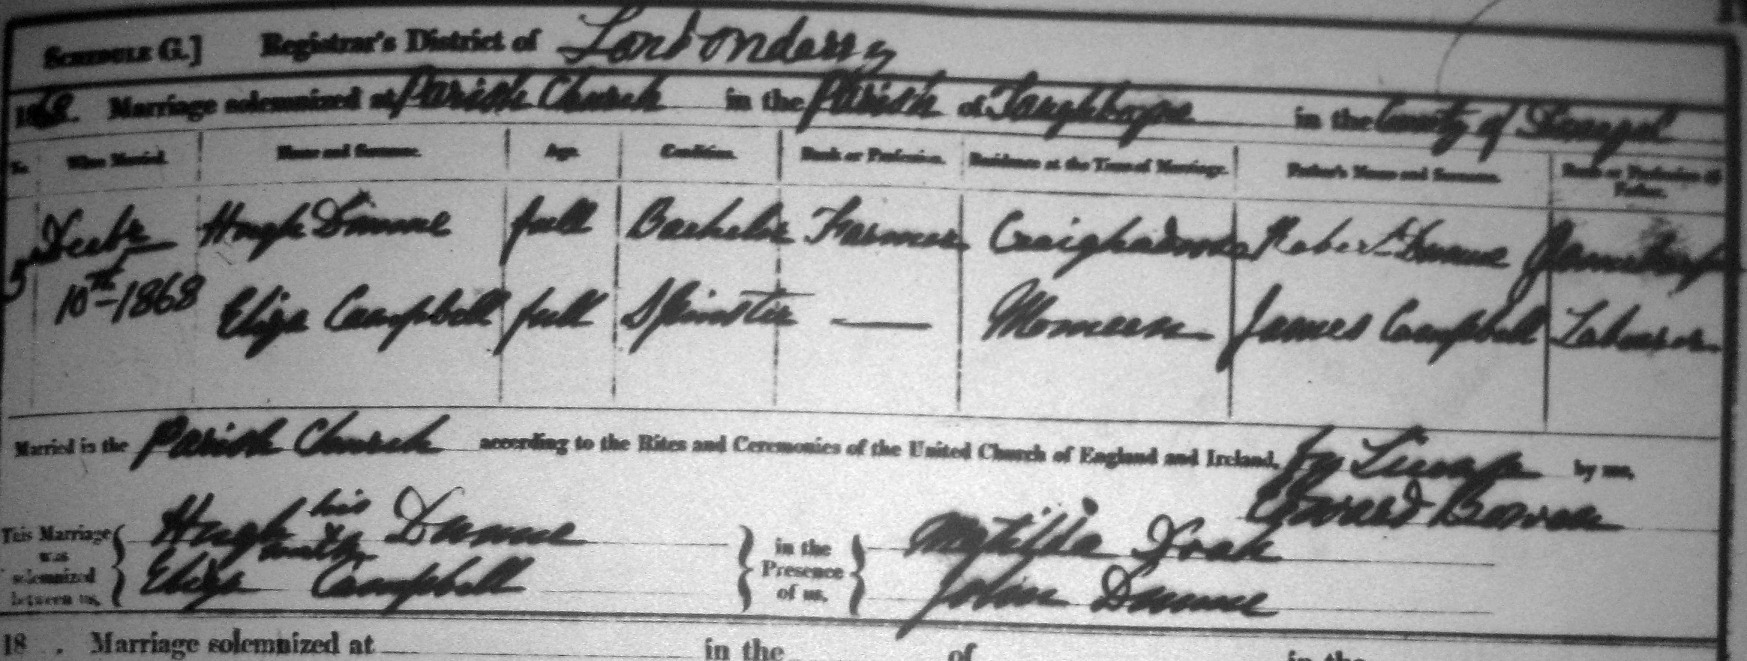 SCHEDULE G.] Registrar's District of Londonderry
1868. Marriage solemnized at Parish Church in the Parish of Taughboyne in the County of Donegal
No. When Married. Name and Surname. Age. Condition. Rank or Profession. Residence at the Time of Marriage. Father's Name and Surname. Rank or Profession of Father.
5 Hugh Dunne full Bachelor Farmer Craighadooes Robert Dunne
10th 1868 Eliza Campbell full Spinster — Momeen James Campbell Labourer
Married in the Parish Church according to the Rites and Ceremonies of the United Church of England and Ireland, by License by me,
Edward Bowen
This Marriage was solemnized between us, { Hugh his Dunne } in the Presence of us, { Matilda
mark
Eliza Campbell John Dunne
18 . Marriage solemnized at in the of in the